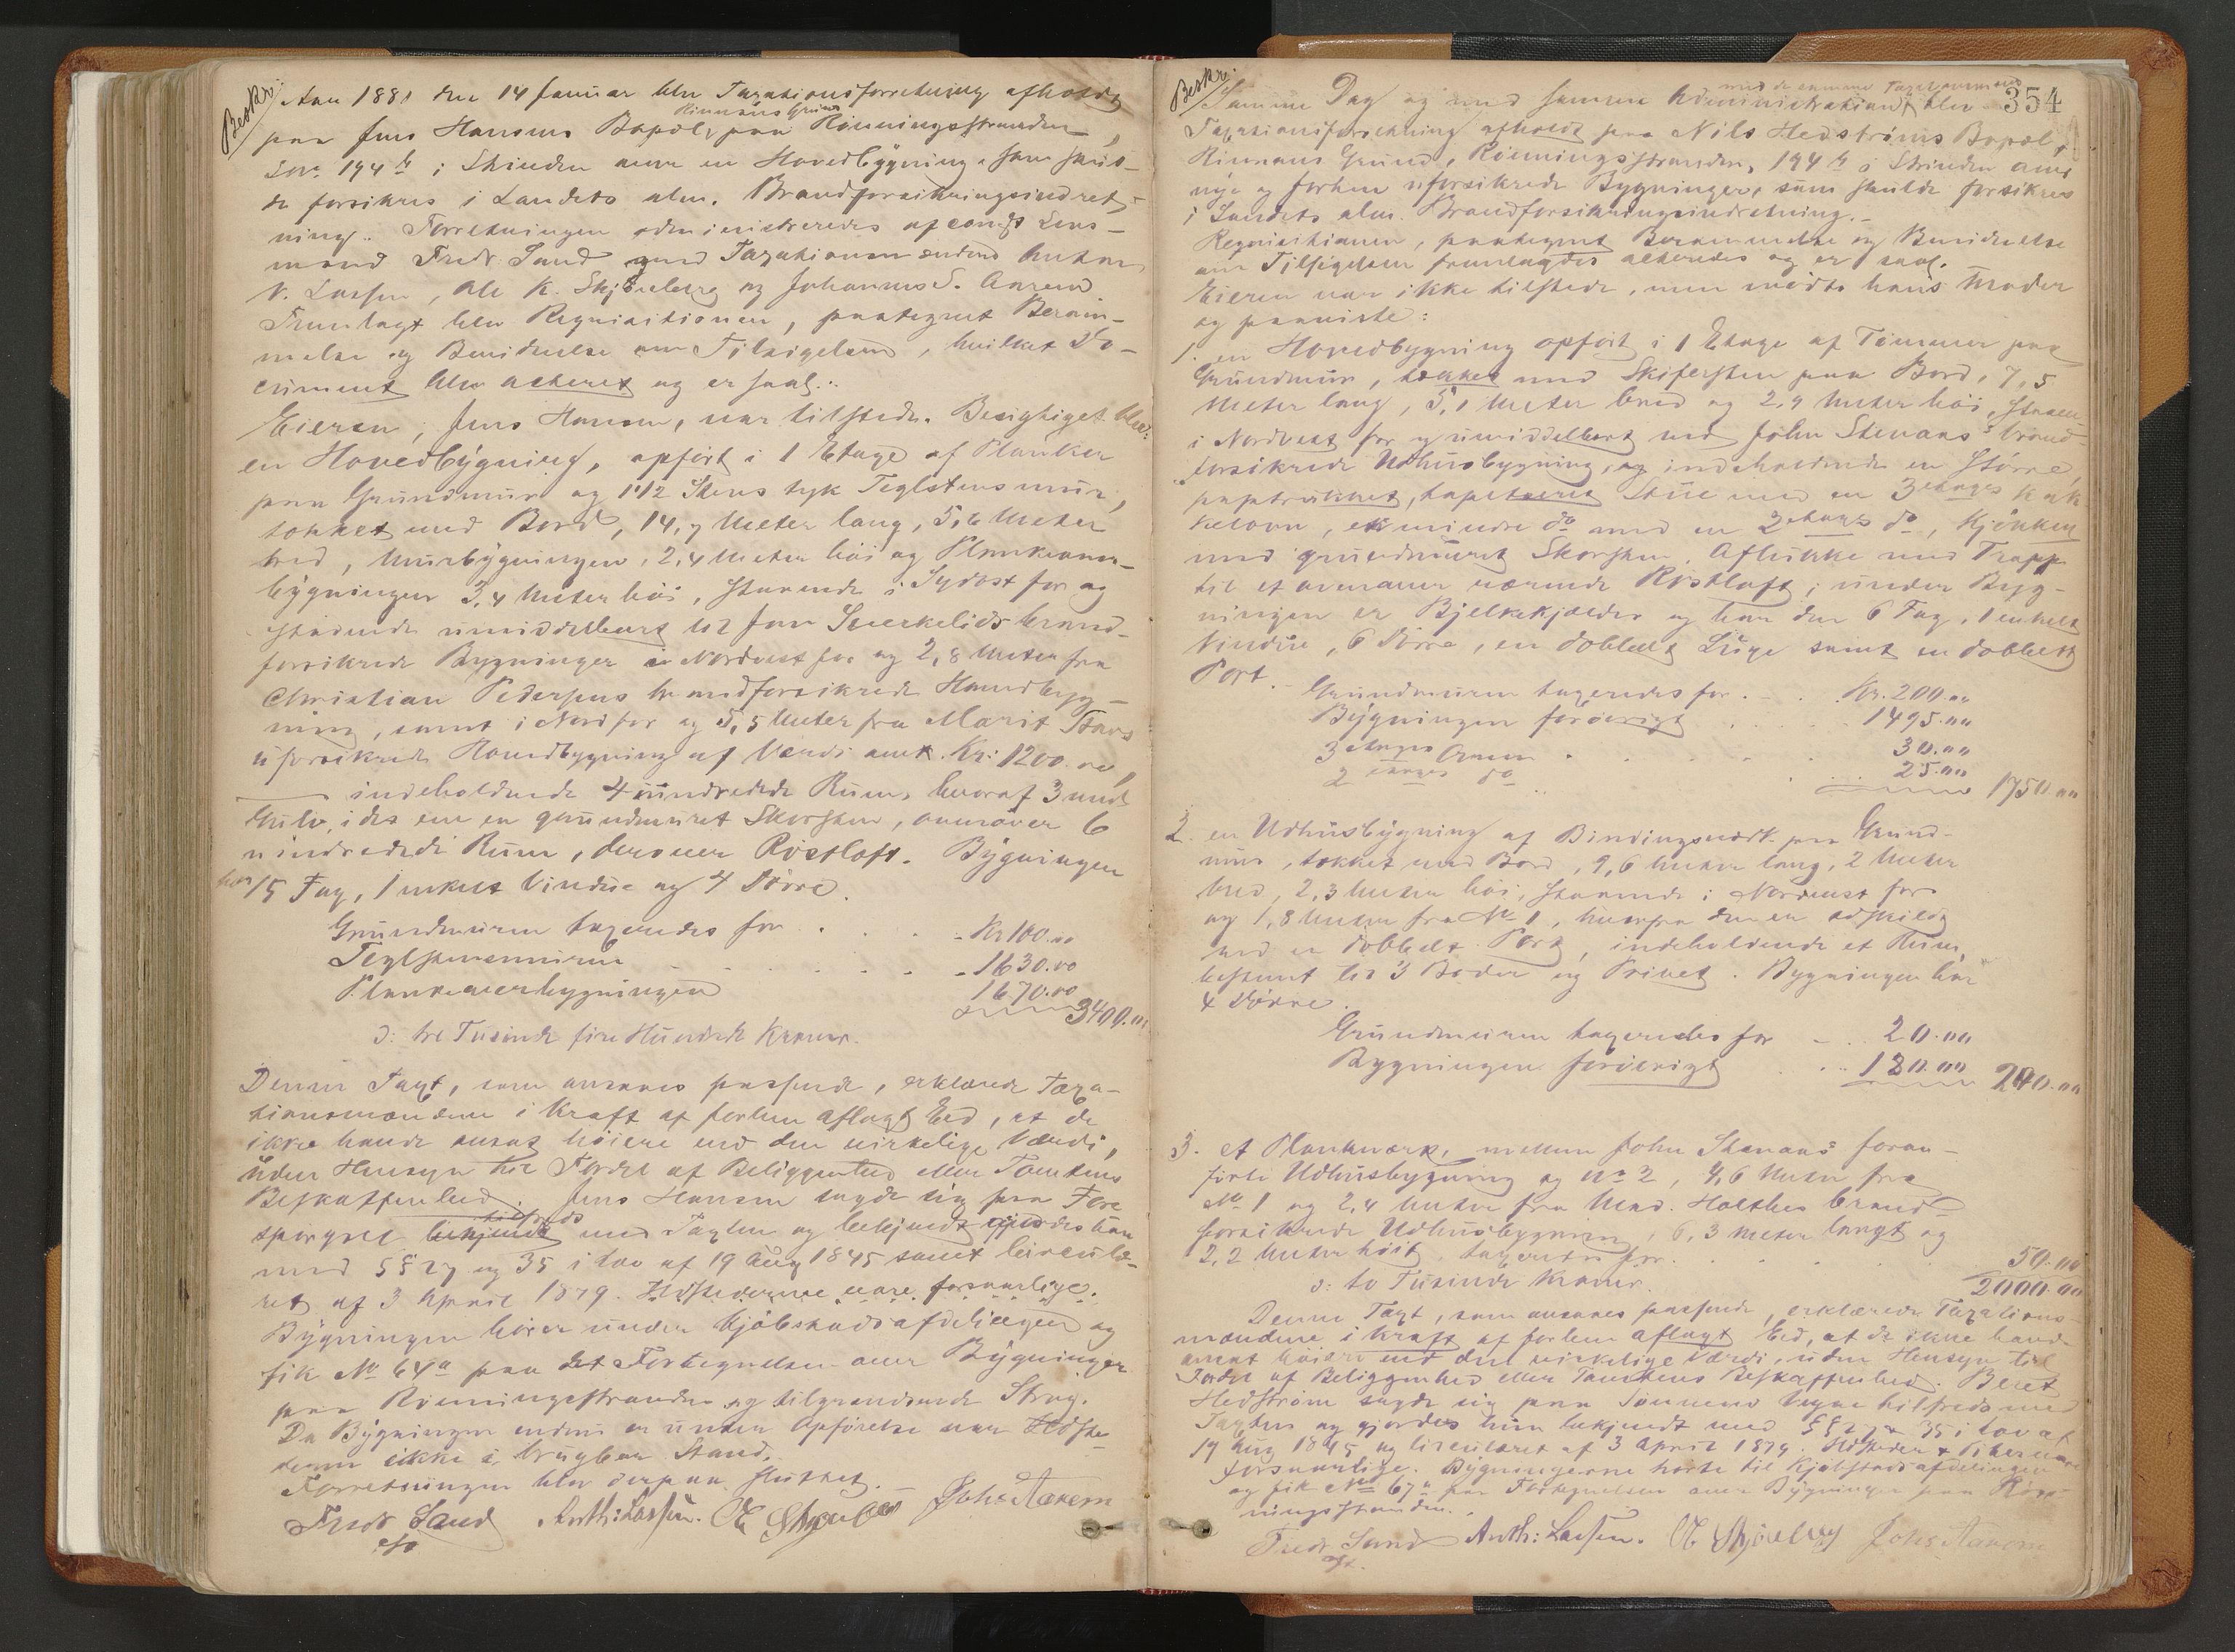 Beskr.
Aar 1881 den 14 Januar blev Taxationsforretning afholdt
Kinmans Grund
paa Jens Hansens Bopæl, paa Rønningsstranden,
Lno. 194 b i Strinden over en Hovedbygning som skul-
de forsikres i Landets alm. Brandforsikringsindret-
ning. Forretningen administreredes af const. Lens-
mand Fredr. Sand med Taxationsmændene Anton
N. Lassen, Ole K. Skjølberg og Johannes S. Aarem
Fremlagt blev Reqvisitionen, paategnet Beram-
melse og Bevidnelse om Tilsigelsen, hvilket Do-
cument blev acteret og er saal.:
Eieren, Jens Hansen, var tilstede. Besigtiget blev:
en Hovedbygning, opført i 1 Etage af Planker
paa Grundmur og 1 1/2 Stens tyk Teglstensmur,
tækket med Bord, 14,7 Meter lang, 5,6 Meter
bred, Murbygningen 2,4 Meter høi og Plankeover-
bygningen 3,4 Meter høi, staaende i Sydost for og
stødende umiddelbart til Jon Sverkelids brand-
forsikrede Bygninger i Nordvest for og 2,8 Meter fra
Christian Pedersens brandforsikrede Hovedbyg-
ning, samt i Nord for og 5,5 Meter fra Marit Stavs
uforsikrede Hovedbygning af Værdi omtr. Kr: 1200.00,
indeholdende 4 uindredede Rum, hvoraf 3 med
Gulv, i det ene en grundmuret Skorsten, ovenover 6
uindredede Rum, derover Røstloft. Bygningen
har 15 Fag, 1 enkelt Vindue og 4 Døre.
Grundmuren taxeredes for . . . . - Kr 100.00
Teglstensmuren - . . . . - 1630.00
Plankeoverbygningen 1670.00
3400.00
ɔ: tre Tusinde fire Hundrede Kroner.
Denne Taxt, som ansees passende, erklærede Taxa-
tionsmændene i Kraft af forhen aflagt Eed, at de
ikke havde ansat høiere end den virkelige Værdi,
uden Hensyn til Fordel af Beliggenhed eller Tomtens
Beskaffenhed. Jens Hansen sagde sig paa Fore
tilfreds
spørgsel bekjendt med Taxten og bekjendt gjordes han
med §§ 27 og 35 i Lov af 19 Aug 1845 samt Circulæ-
ret af 3 April 1879. Ildstederne vare forsvarlige.
Bygningen hører under Kjøbstadsafdelingen og
fik No 64a paa Fortegnelsen over Bygninger
paa Rønningsstranden og tilgrændsende Strøg.
Da Bygningen endnu er under Opførelse var Ildste-
derne ikke i brugbar Stand.
Forretningen blev derpaa sluttet. -
Fredr Sand Anth: Lassen. OK Skjølberg Johs Aarem
cst
354
Beskr.
med de samme Taxtmænd
Samme Dag og med samme Administration blev
Taxationsforretning afholdt paa Nils Hedstrøms Bopæl,
Kinmans Grund, Rønningsstranden, 194 b i Strinden over
nye og forhen uforsikrede Bygninger, som skulde forsikres
i Landets alm. Brandforsikringsindretning. -
Reqvisitionen, paategnet Berammelse og Bevidnelse
om Tilsigelsen fremlagdes acteredes og er saal.
Eieren var ikke tilstede, men mødte hans Moder
og paaviste:
1. en Hovedbygning opført i 1 Etage af Tømmer paa
Grundmur, tækket med Skifersten paa Bord, 7,5
Meter lang, 5,1 Meter bred og 2,9 Meter høi, staaende
i Nordvest for og umiddelbart ved John Stenaas' brand-
forsikrede Udhusbygning, og indeholdende en større
paptrukket, tapetseret Stue med en 3etages Kak-
kelovn, et mindre do med en 2etages do, Kjøkken
med grundmuret Skorsten, Aflukke med Trapp
til et ovenover værende Røstloft; under Byg-
ningen er Bjelkekjælder og har den 6 Fag, 1 enkelt
Vindue, 6 Døre, en dobbelt Luge samt en dobbelt
Port. -
Grundmuren taxeredes for . - . Kr. 200.00
Bygningen forøvrigt . . . 1495.00
3 etages Ovnen . . . . 30.00
2 etages do . . . 25.00 1750.00
2. en Udhusbygning af Bindingsværk paa Grund-
mur, tækket med Bord, 9,6 Meter lang, 2 Meter
bred, 2,3 Meter høi, staaende i Nordvest for
og 1,8 Meter fra No 1, hvorfra den er adskildt
ved en dobbelt Port, indeholdende et Rum
bestemt til 3 Boder og Privet. Bygningen har
4 Døre.
Grundmuren taxeredes for - . 20.00
Bygningen forøvrigt . . 180.00 200.00
3. et Plankværk, mellem John Stenaas' foran-
førte Udhusbygning og No 2, 4,6 Meter fra
No 1 og 2,4 Meter fra Mad. Holthes brand-
forsikrede Udhusbygning, 6,3 Meter langt og
2,2 Meter høit taxeredes for . . . . 50.00
ɔ: to Tusinde Kroner. 2000.00
Denne Taxt, som ansees passende, erklærede Taxations-
mændene i Kraft af forhen aflagt Eed, at de ikke havde
ansat høiere end den virkelige Værdi, uden Hensyn til
Fordel af Beliggenhed eller Tomtens Beskaffenhed. Beret
Hedstrøm sagde sig paa Sønnens Vegne tilfreds med
Taxten og gjordes hun bekjendt med §§ 27 & 35 i Lov af
19 Aug 1845 og Circulæret af 3 April 1879. Ildsteder & Piber vare
forsvarlige. Bygningerne hørte til Kjøbstadsafdelingen
og fik No 67a paa Fortegnelsen over Bygninger paa Røn-
ningsstranden.
Fredr Sand Anth: Lassen. OK Skjølberg Johs Aarem
cst.